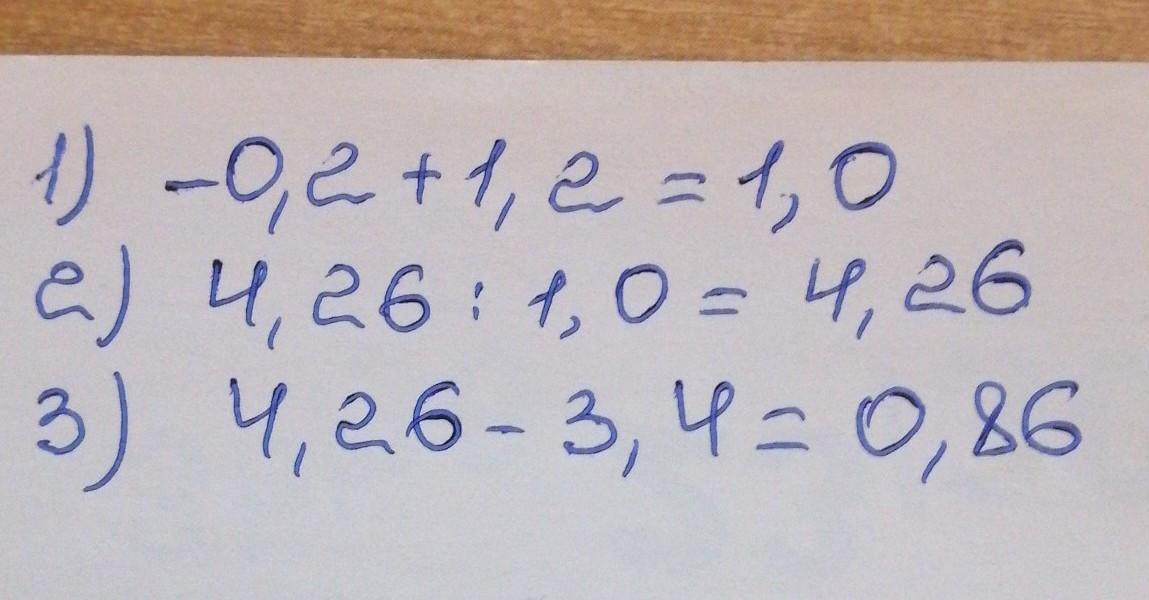 1) -0,2+1,2=1,0
2) 4,26:1,0=4,26
3) 4,26-3,4=0,86